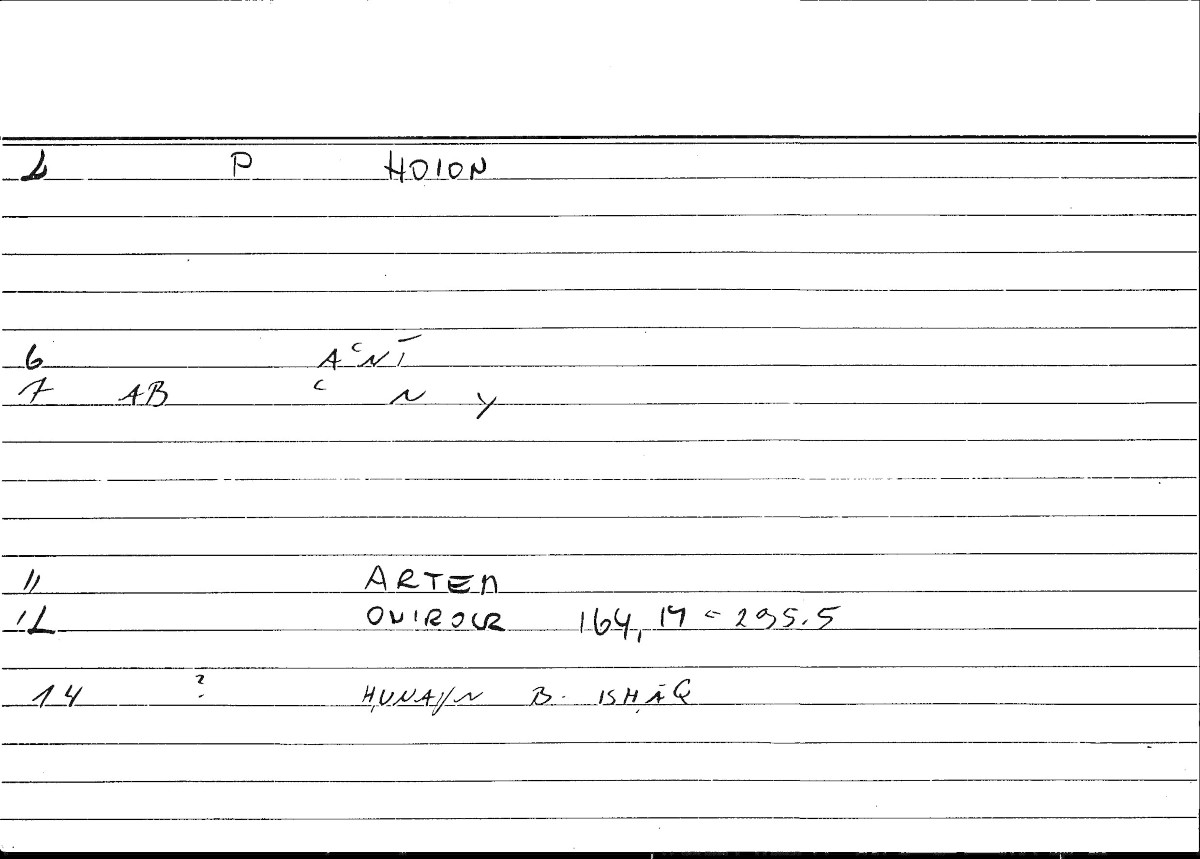 2 P HOION
6 AʿNĪ
7 AB ʿ N Y
11 ARTEM
12 ONIROCR 164,14 = 295.5
14 ? ḤUNAYN B. ISḤĀQ